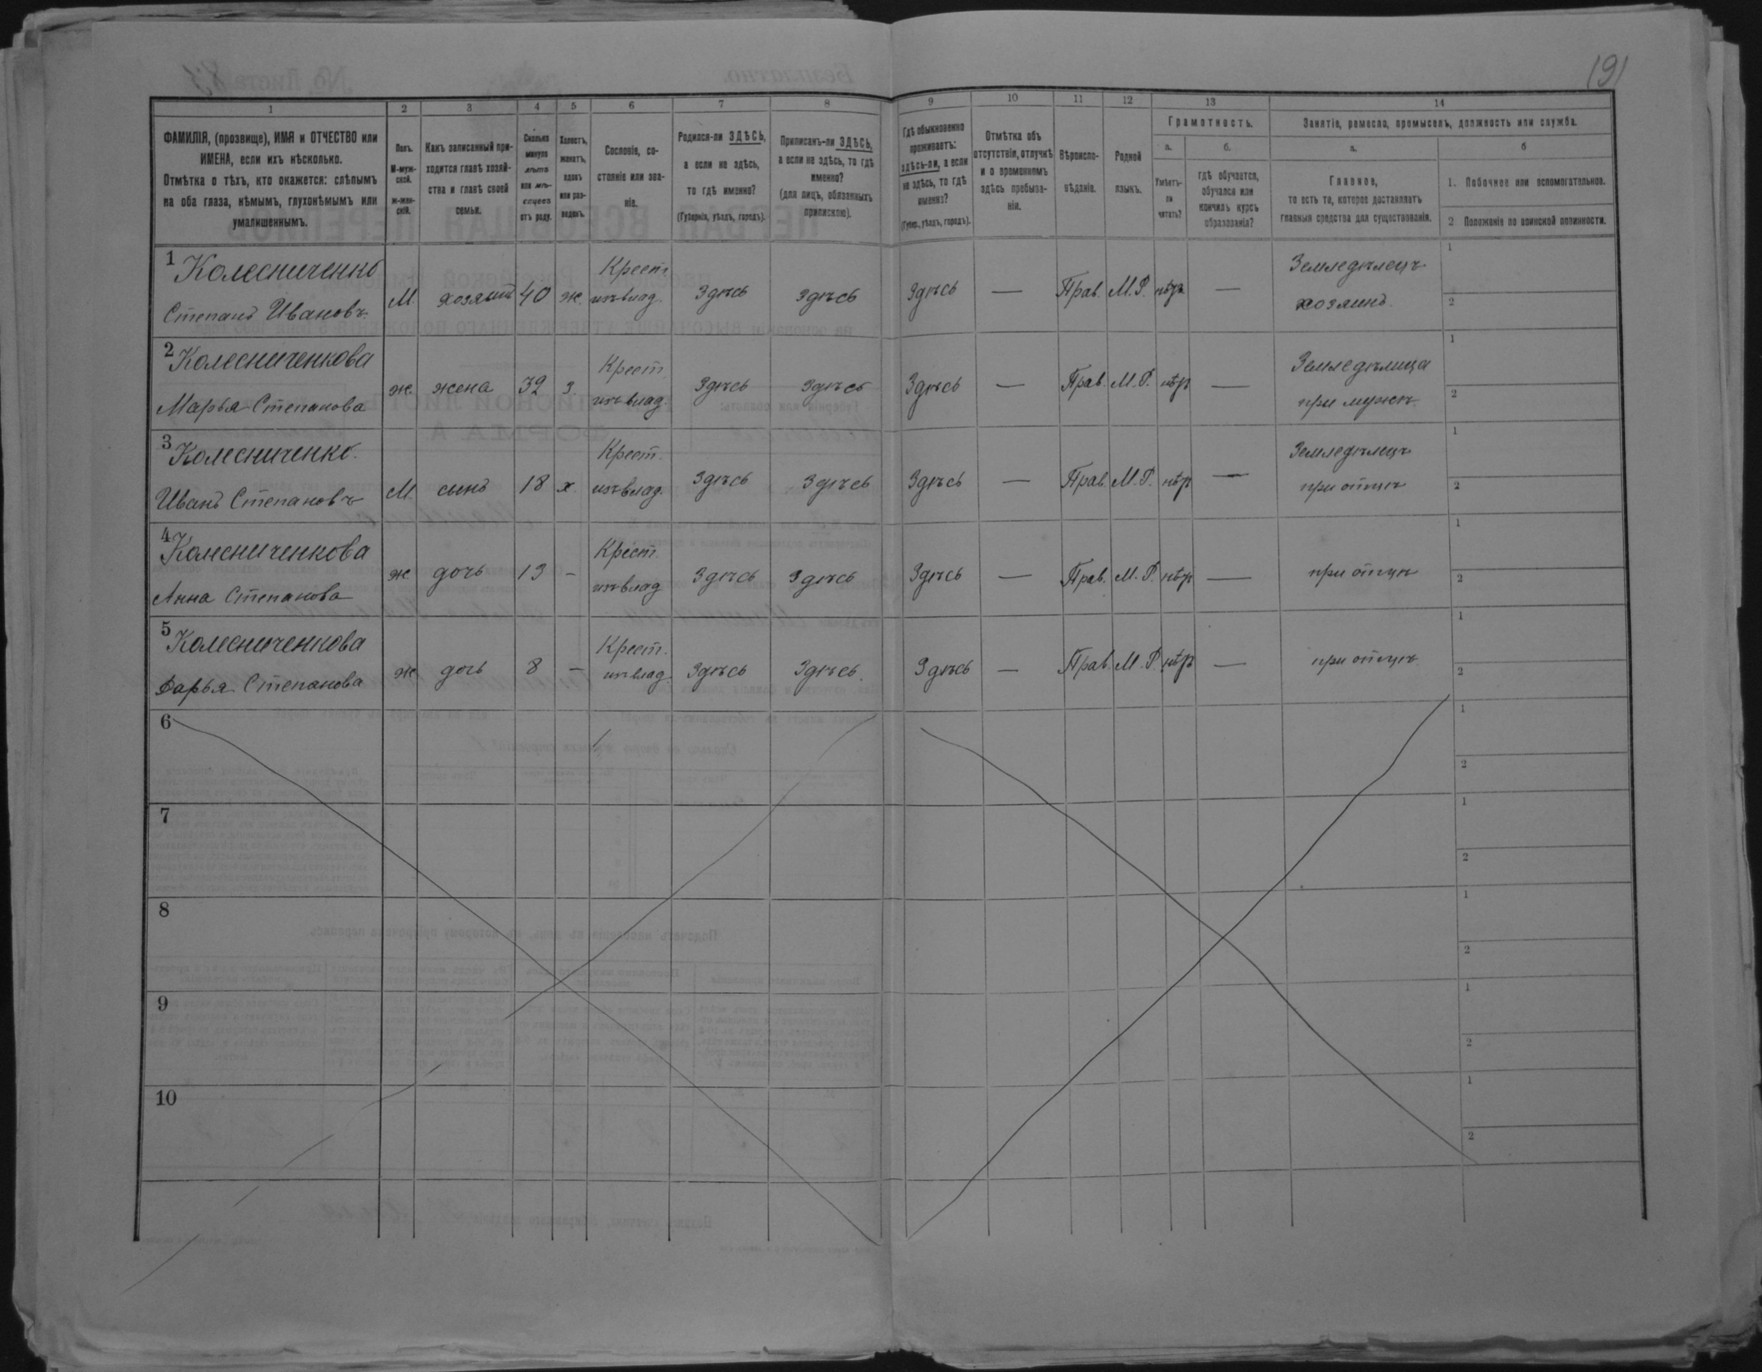 191
1
2
3
4
5
6
7
8
9
10
11
12
13
14
ФАМИЛІЯ, (прозвище), ИМЯ и ОТЧЕСТВО или
ИМЕНА, если ихъ нѣсколько.
Отмѣтка о тѣхъ, кто окажется: слѣпымъ
на оба глаза, нѣмымъ, глухонѣмымъ или
умалишеннымъ.
Полъ.
М-муж-
ской.
ж-жен-
скій.
Какъ записанный при-
ходится главѣ хозяй-
ства и главѣ своей
семьи.
Сколько
минуло
лѣтъ
или мѣ-
сяцевъ
отъ роду.
Холостъ,
женатъ,
вдовъ
или раз-
веденъ.
Сословіе, со-
стояніе или зва-
ніе.
Родился-ли ЗДѢСЬ,
а если не здѣсь,
то гдѣ именно?
(Губернія, уѣздъ, городъ).
Приписанъ-ли ЗДѢСЬ,
а если не здѣсь, то гдѣ
именно?
(для лицъ, обязанныхъ
припискою).
Гдѣ обыкновенно
проживаетъ:
здѣсь-ли, а если
не здѣсь, то гдѣ
именно?
(Губер., уѣздъ, городъ).
Отмѣтка объ
отсутствіи, отлучкѣ
и о временномъ
здѣсь пребыва-
ніи.
Вѣроиспо-
вѣданіе.
Родной
языкъ.
Грамотность.
а.
Умѣетъ-
ли
читать?
б.
гдѣ обучается,
обучался или
кончилъ курсъ
образованія?
Занятіе, ремесло, промыселъ, должность или служба.
а.
Главное,
то есть то, которое доставляетъ
главныя средства для существованія.
б
1. Побочное или вспомогательное.
2 Положеніе по воинской повинности.
1 Колесниченко
Степанъ Ивановъ
М хозяинъ 40 ж. Крест. изъ влад. Здѣсь Здѣсь Здѣсь — Прав. М.Р. нѣтъ — Земледѣлецъ хозяинъ
1
2
2 Колесниченкова
Марья Степанова
ж жена 32 з. Крест. изъ влад. Здѣсь Здѣсь Здѣсь — Прав. М.Р. нѣтъ — Земледѣлица при мужѣ
1
2
3 Колесниченко.
Иванъ Степановъ
М сынъ 18 х Крест. изъ влад. Здѣсь Здѣсь Здѣсь — Прав. М.Р. нѣтъ — Земледѣлецъ при отцѣ
1
2
4 Колесниченкова
Анна Степанова
ж дочь 13 - Крест. изъ влад. Здѣсь Здѣсь Здѣсь — Прав. М.Р. нѣтъ — при отцѣ
1
2
5 Колесниченкова
Дарья Степанова
ж дочь 8 - Крест. изъ влад. Здѣсь Здѣсь. Здѣсь — Прав. М.Р. нѣтъ — при отцѣ
1
2
6
1
2
7
1
2
8
1
2
9
1
2
10
1
2